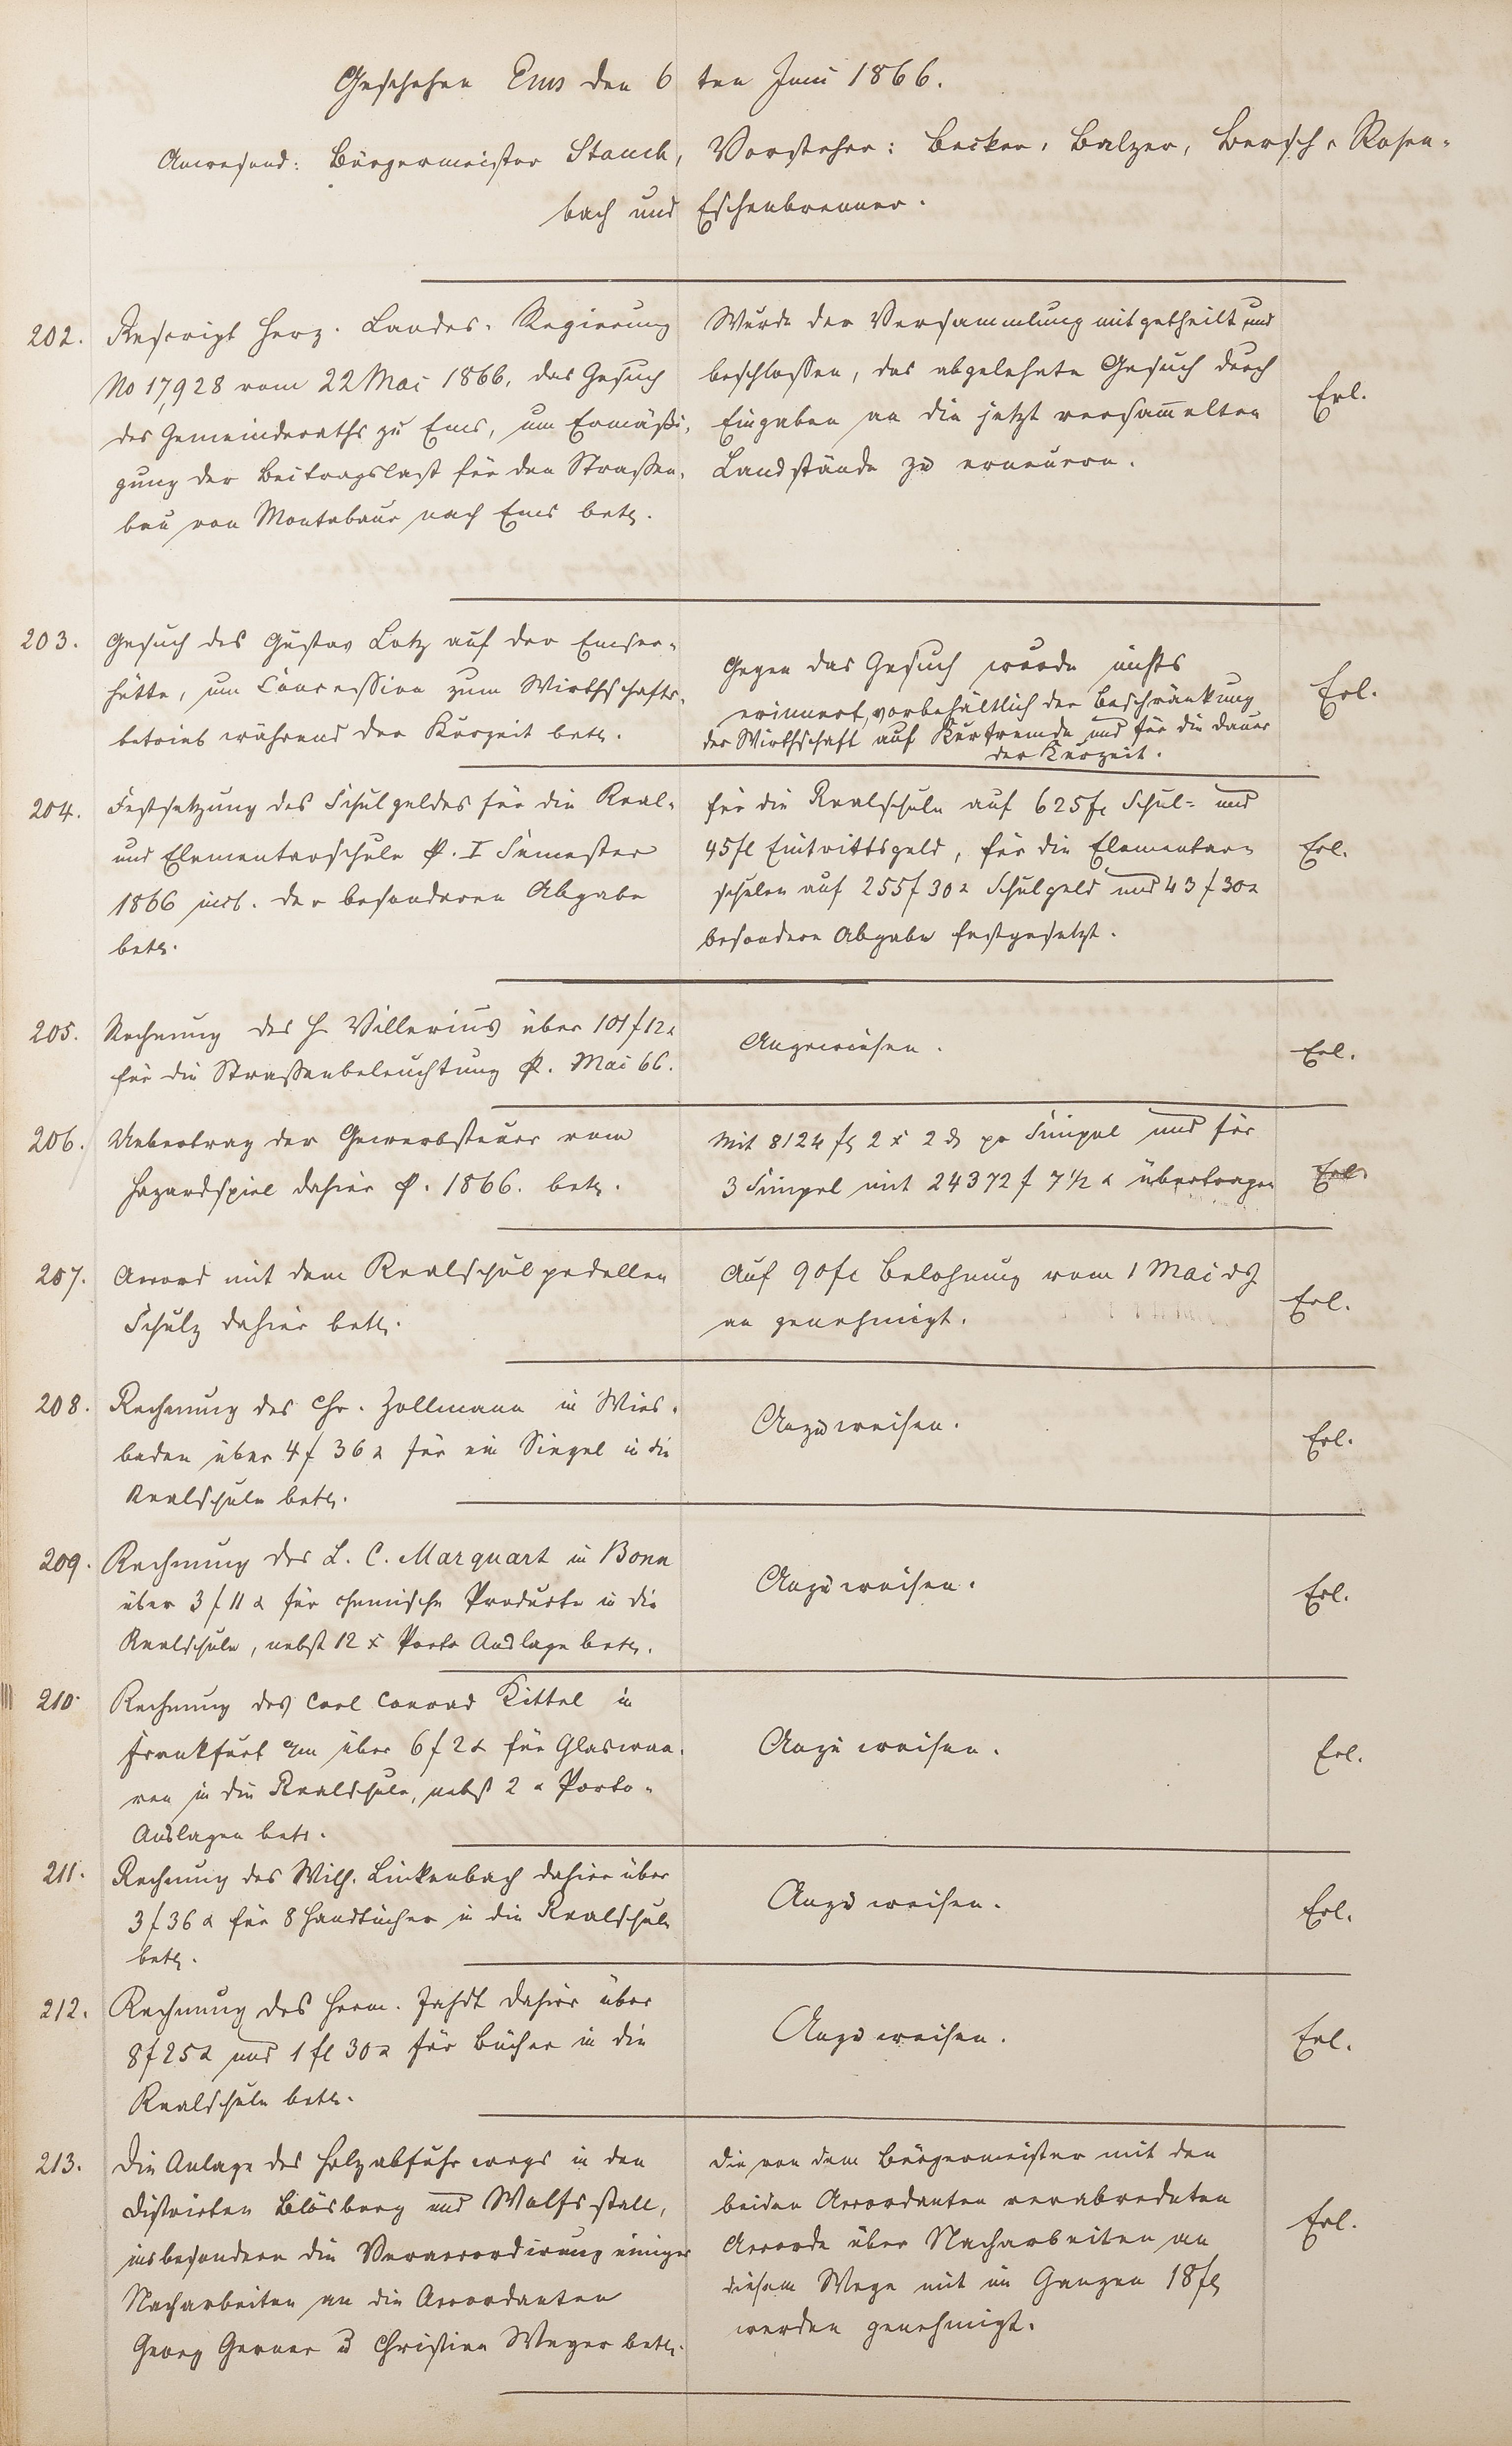 Geschehen Ems den 6ten Juni 1866.
Anwesend: Bürgermeister Stauch, Vorsteher: Becker, Balzer, Bersch, Rosen-
bach und Eschenbrenner.
202. Rescript Herz. Landes-Regierung
No 17,928 vom 22 Mai 1866, das Gesuch
des Gemeinderaths zu Ems, um Ermäßi-
gung der Beitragslast für den Straßen-
bau von Montabaur nach Ems betr.
Wurde der Versammlung mitgetheilt und
beschlossen, das abgelehnte Gesuch durch
Eingaben an die jetzt versammelten
Landstände zu erneuern.
Erl.
203. Gesuch des Gustav Lotz auf der Emser-
hütte, um Concession zum Wirthschafts-
betrieb während der Kurzeit betr.
Gegen das Gesuch wurde nichts
erinnert, vorbehältlich der Beschränkung
der Wirthschaft auf Kurfremde und für die Dauer
der Kurzeit.
Erl.
204. Festsetzung des Schulgeldes für die Real-
und Elementarschule p. I Semester
1866 incl. der besonderen Abgabe
betr.
für die Realschule auf 625 fl Schul- und
45 fl Eintrittsgeld, für die Elementar-
schulen auf 255 f 30 x Schulgeld und 43 f 30 x
besondere Abgabe festgesetzt.
Erl.
205. Rechnung des H. Villerius über 101 f 12 x
für die Straßenbeleuchtung p. Mai 66.
Angewiesen.
Erl.
206. Uebertrag der Gewerbsteuer vom
Hazardspiel dahier p. 1866. betr.
Mit 8124 fl 2 x 2 d pr Simpel und für
3 Simpel mit 24372 f 7 1/2 x übertragen
Erl.
207. Accord mit dem Realschulpedellen
Schulz dahier betr.
Auf 90 fl Belohnung vom 1 Mai dJ
an genehmigt.
Erl.
208. Rechnung des Chr. Zollmann in Wies-
baden über 4 f 36 x für ein Siegel in die
Realschule betr.
Anzuweisen.
Erl.
209. Rechnung des L. C. Marquart in Bonn
über 3 f 11 x für chemische Producte in die
Realschule, nebst 12 x Porto Auslage betr.
Anzuweisen.
Erl.
210. Rechnung des Carl Conrad Kittel in
Frankfurt a/m über 6 f 2 x für Glaswaa-
ren in die Realschule, nebst 2 x Porto-
Auslagen betr.
Anzuweisen.
Erl.
211. Rechnung des Wilh. Linkenbach dahier über
3 f 36 x für 8 Handtücher in die Realschule
betr.
Anzuweisen.
Erl.
212. Rechnung des Herm. Jahdt dahier über
8 f 25 x und 1 fl 30 x für Bücher in die
Realschule betr.
Anzuweisen.
Erl.
213. Die Anlage des Holzabfuhrwegs in den
Districten Blösberg und Wolfsstall,
insbesondere die Veraccordirung einiger
Nacharbeiten an die Accordanten
Georg Gerner u Christian Weyer betr.
Die von dem Bürgermeister mit den
beiden Accordanten verabredeten
Accorde über Nacharbeiten an
diesem Wege mit im Ganzen 18 fl
werden genehmigt.
Erl.